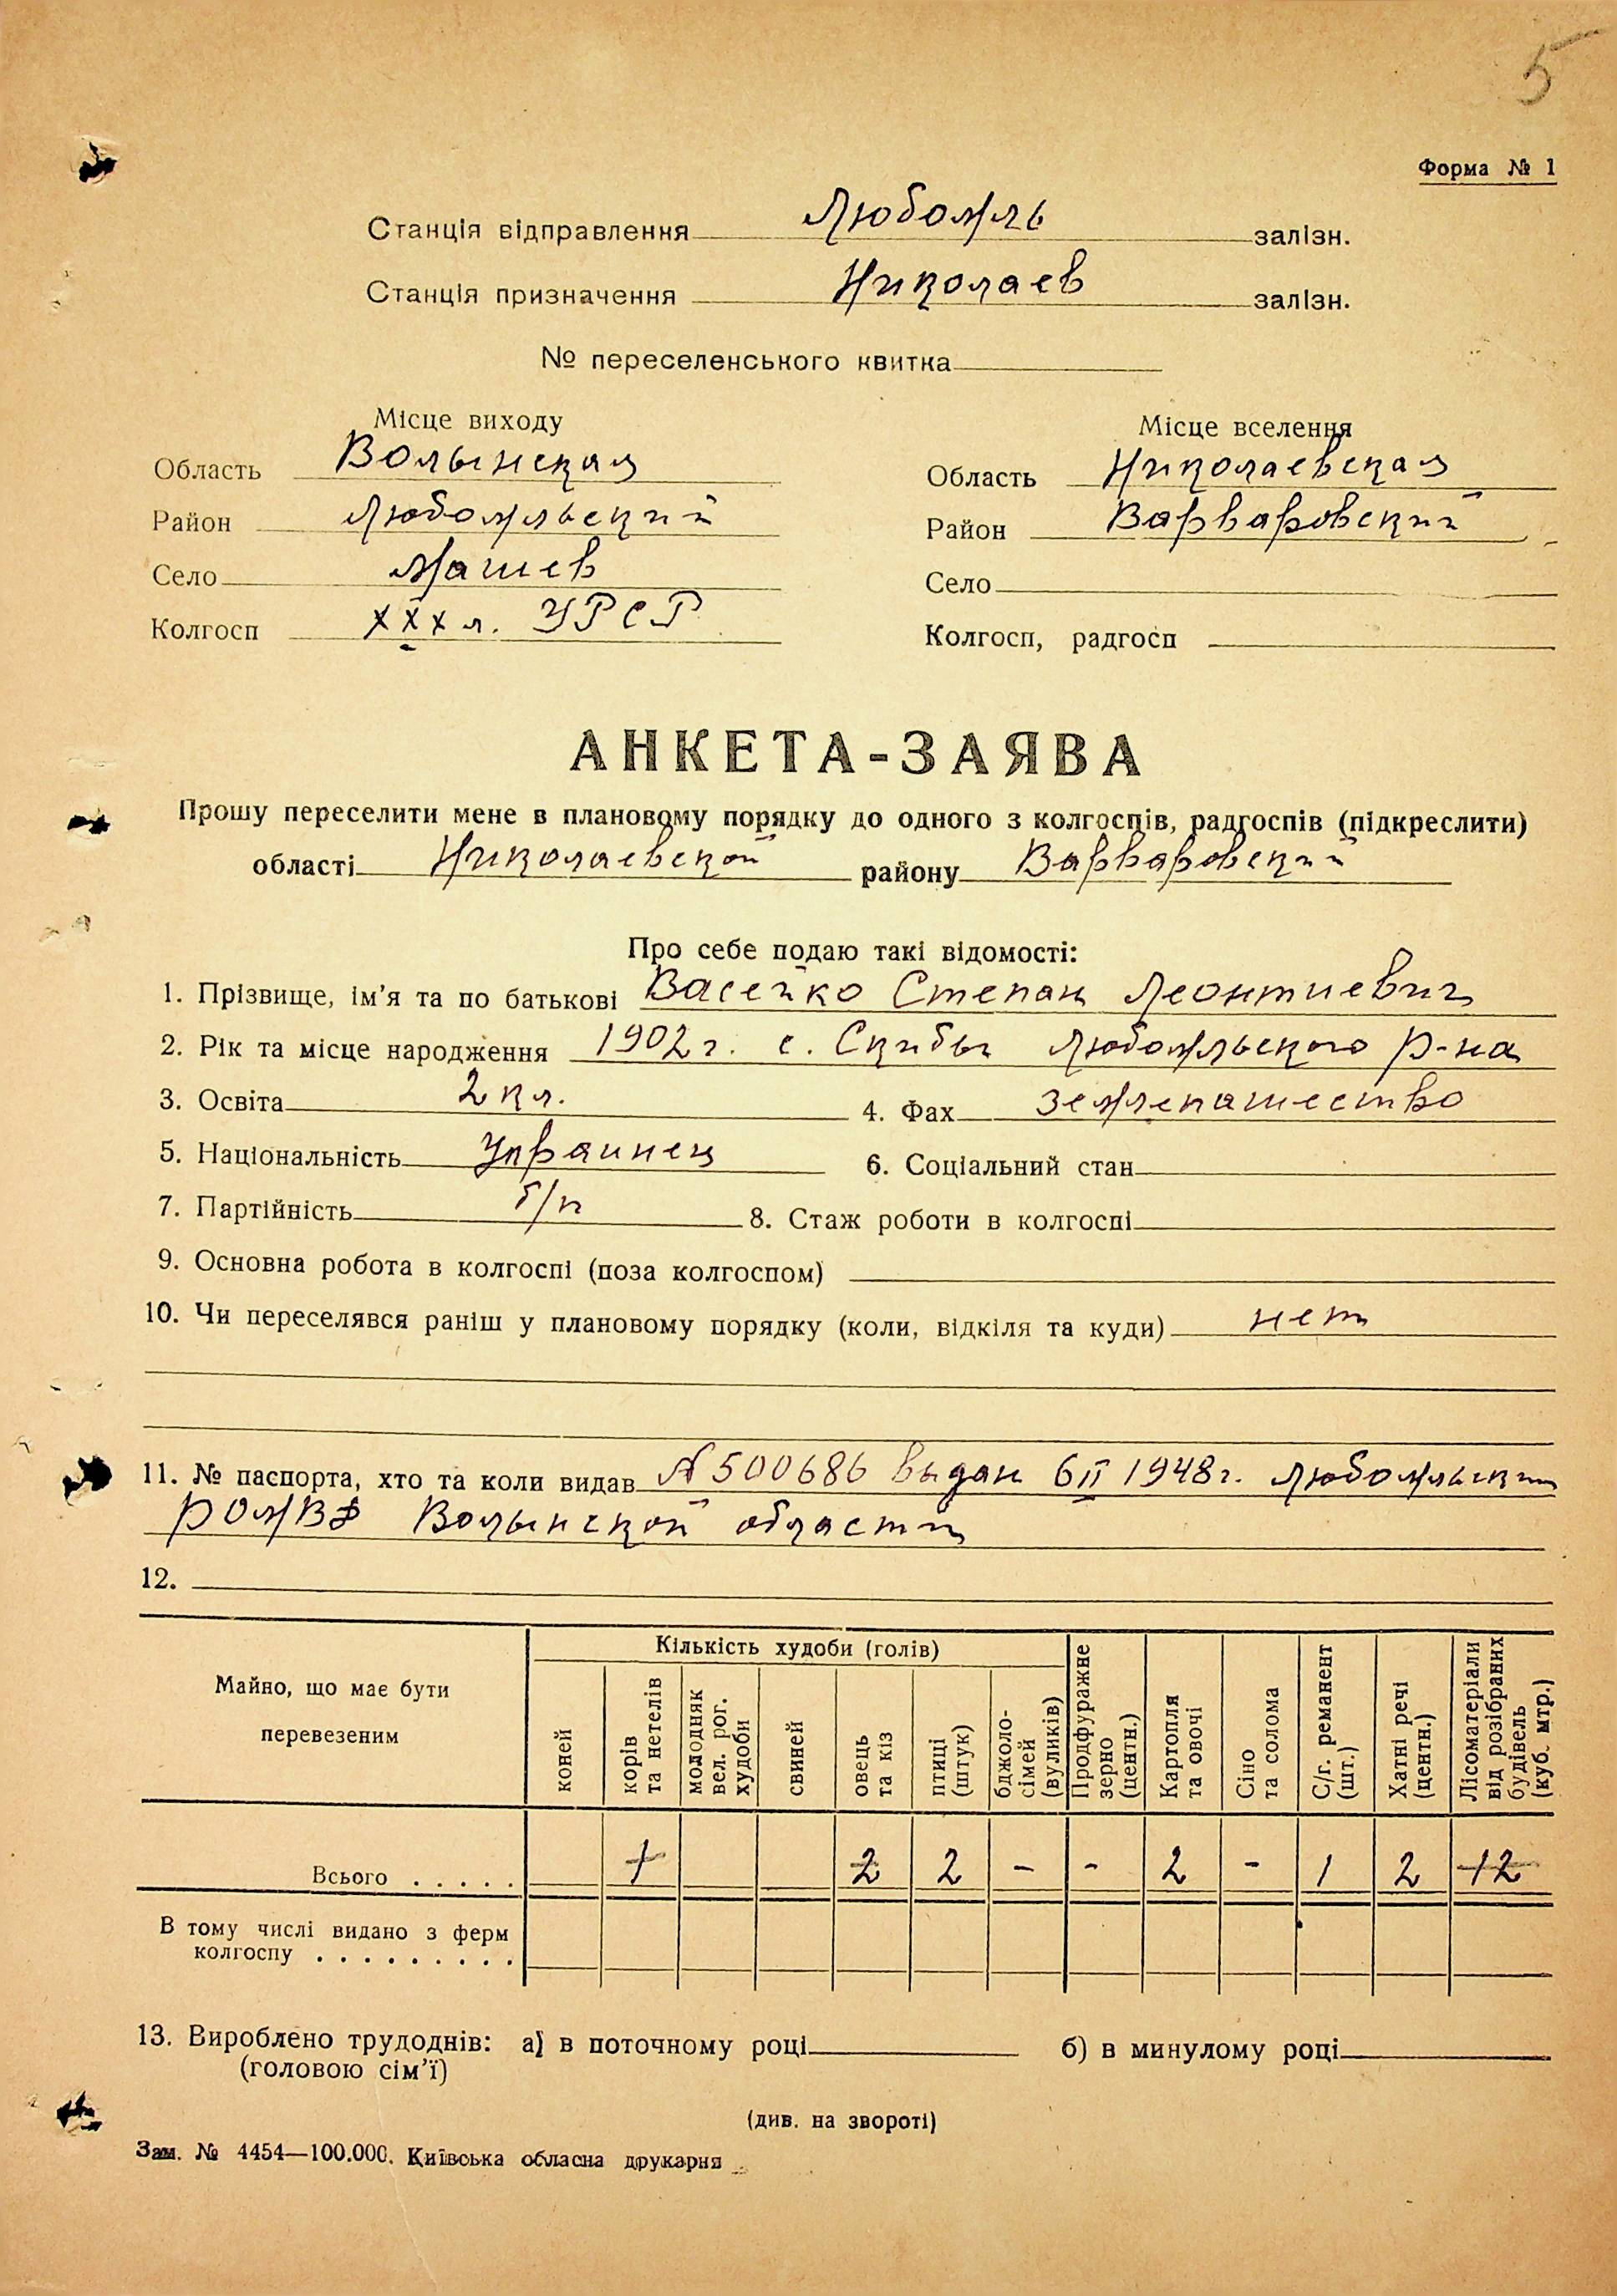 5
Форма № 1
Станція відправлення Любомль залізн.
Станція призначення Николаев залізн.
№ переселенського квитка
Місце виходу Місце вселення
Область Волынская Область Николаевская
Район Любомльский Район Варваровский
Село Машев Село
Колгосп ХХХ л. УРСР Колгосп, радгосп
АНКЕТА-ЗАЯВА
Прошу переселити мене в плановому порядку до одного з колгоспів, радгоспів (підкреслити)
області Николаевской району Варваровский
Про себе подаю такі відомості:
1. Прізвище, ім’я та по батькові Васейко Степан Леонтиевич
2. Рік та місце народження 1902 г. с. Скибы Любомльского р-на
3. Освіта 2 кл. 4. Фах землепашество
5. Національність Украинец 6. Соціальний стан
7. Партійність б/п 8. Стаж роботи в колгоспі
9. Основна робота в колгоспі (поза колгоспом)
10. Чи переселявся раніш у плановому порядку (коли, відкіля та куди) нет
11. № паспорта, хто та коли видав 500686 выдан 6 II 1948 г. Любомльским
РОМВД Волынской области
12.
Майно, що має бути перевезеним
Кількість худоби (голів)
коней
корів та нетелів
молодняк вел. рог. худоби
свиней
овець та кіз
птиці (штук)
бджоло-сімей (вуликів)
Продфуражне зерно (центн.)
Картопля та овочі
Сіно та солома
С/г. реманент (шт.)
Хатні речі (центн.)
Лісоматеріали від розібраних будівель (куб. мтр.)
Всього . . . . . 1 2 2 - - 2 - 1 2 12
В тому числі видано з ферм
колгоспу . . . . . . . . .
13. Вироблено трудоднів: а) в поточному році б) в минулому році
(головою сім’ї)
(див. на звороті)
Зам. № 4454—100.000. Київська обласна друкарня